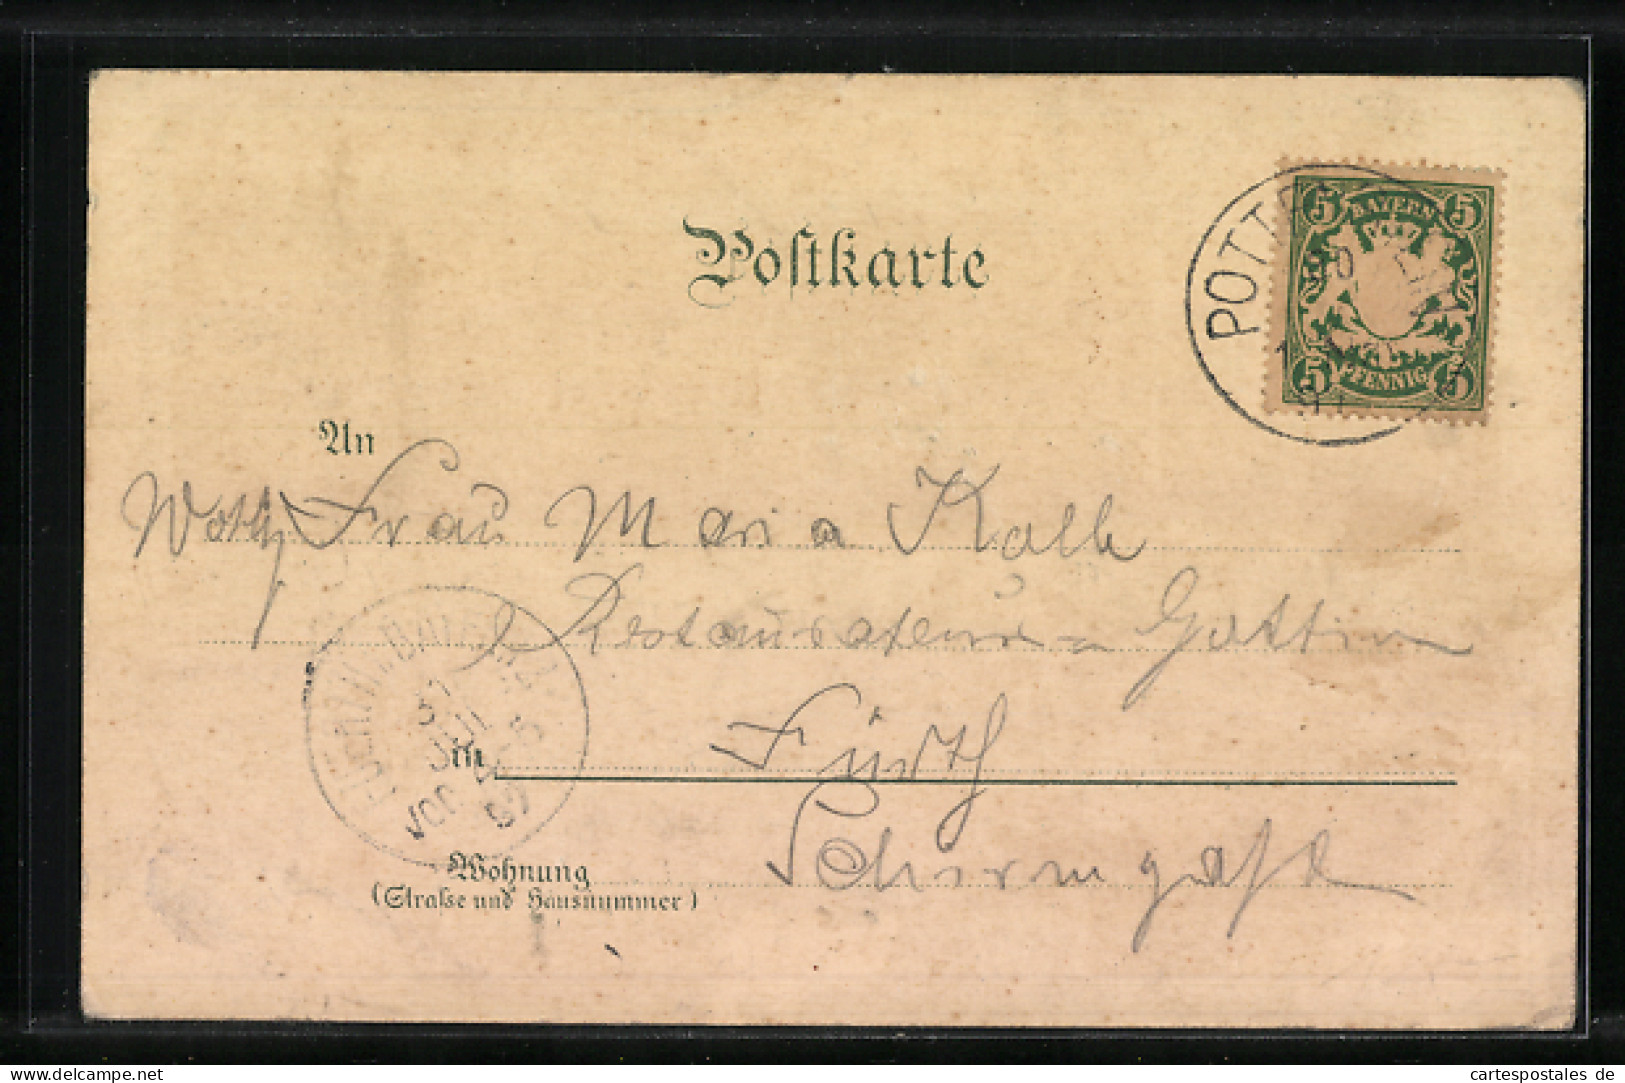 Postkarte
POTT
5 BAYERN 5
5 PFENNIG 5
An
Frau Maria Kalb
Restaurateurs-Gattin
31
JUL
Vor. 4-5
97
in Fürth
Wohnung
(Straße und Hausnummer)
www.cartespostales.de